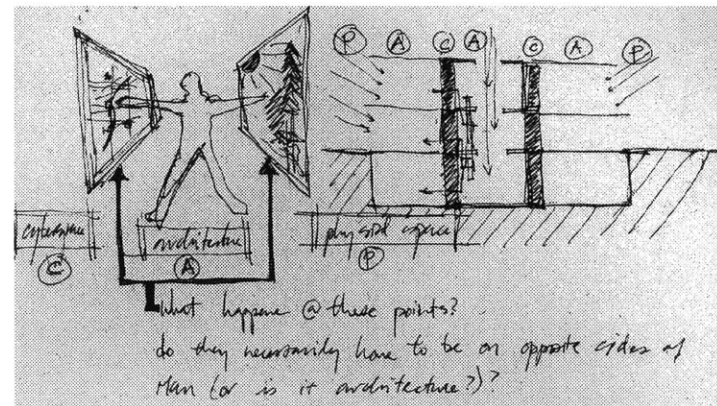 P A C A C A P
cyberspace architecture physical space
C A P
What happens @ these points?
do they necessarily have to be on opposite sides of
Man (or is it architecture?)?